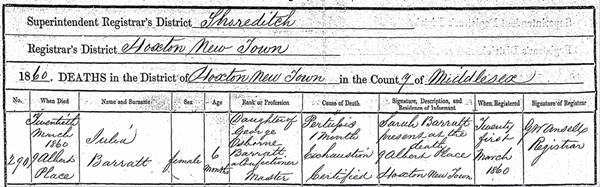 Superintendent Registrar's District Shoreditch
Registrar's District Hoxton New Town
1860. DEATHS in the District of Hoxton New Town in the County of Middlesex
No. When Died Name and Surname Sex Age Rank or Profession Cause of Death Signature, Description, and Residence of Informant When Registered Signature of Registrar
290
Twentieth
March
1860
9 Albert
Place
Julia
Barratt
female
6
months
Daughter of
George
Osborne
Barratt
a Confectioner
Master
Pertussis
1 Month
Exhaustion
Certified
Sarah Barratt
present at the
death
9 Albert Place
Hoxton New Town
Twenty
first
March
1860
Registrar